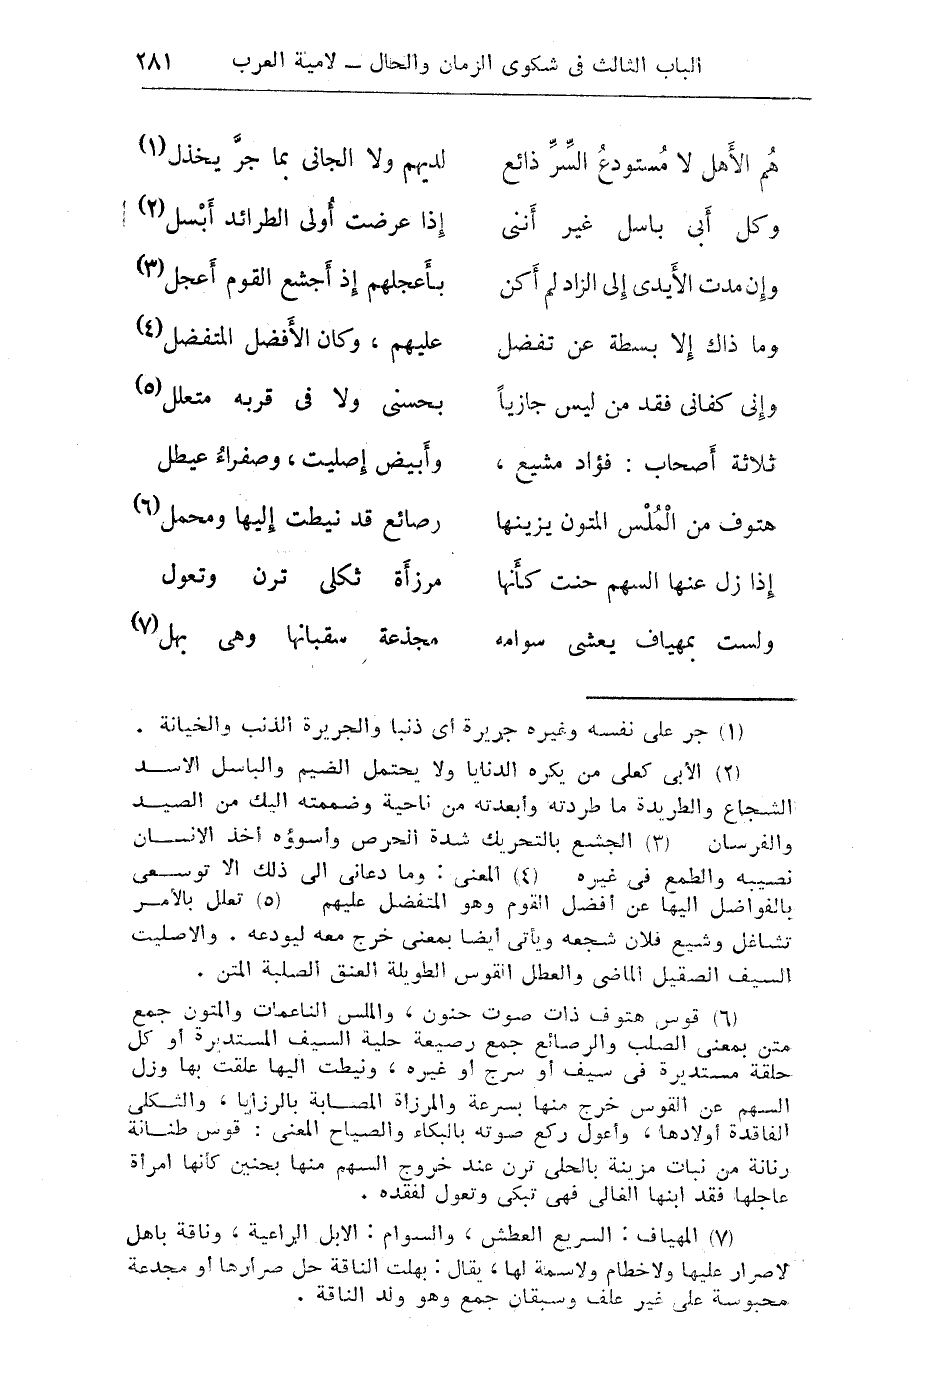 الباب الثالث فى شكوى الزمان والحال ــ لامية العرب ٢٨١
هُم الأَهل لا مُستودعُ السِّرِّ ذائع لديهم ولا الجانى بما جرَّ يخذل(١)
وكل أَبى باسل غير أَننى إذا عرضت أُولى الطرائد أَبْسل(٢)
وإن مدت الأَيدى إلى الزاد لم أَكن بأَعجلهم إذ أَجشع القوم أَعجل(٣)
وما ذاك إلا بسطة عن تفضل عليهم ، وكان الأَفضل المتفضل(٤)
وإنى كفانى فقد من ليس جازياً بحسنى ولا فى قربه متعلل(٥)
ثلاثة أَصحاب : فؤاد مشيع ، وأَبيض إصليت ، وصفراءُ عيطل
هتوف من الْمُلْس المتون يزينها رصائع قد نيطت إليها ومحمل(٦)
إذا زل عنها السهم حنت كأَنها مرزأَة ثكلى ترن وتعول
ولست بمهياف يعشى سوامه مجذعة سقبانها وهى بهل(٧)
(١) جر على نفسه وغيره جريرة أى ذنبا والجريرة الذنب والخيانة .
(٢) الأبى كعلى من يكره الدنايا ولا يحتمل الضيم والباسل الاسد
الشجاع والطريدة ما طردته وأبعدته من ناحية وضممته اليك من الصيد
والفرسان (٣) الجشع بالتحريك شدة الحرص وأسوؤه أخذ الانسان
نصيبه والطمع فى غيره (٤) المعنى : وما دعانى الى ذلك الا توسعى
بالفواضل اليها عن أفضل القوم وهو المتفضل عليهم (٥) تعلل بالأمر
تشاغل وشيع فلان شجعه ويأتى أيضا بمعنى خرج معه ليودعه . والاصليت
السيف الصقيل الماضى والعطل القوس الطويلة العنق الصلبة المتن .
(٦) قوس هتوف ذات صوت حنون ، والملس الناعمات والمتون جمع
متن بمعنى الصلب والرصائع جمع رصيعة حلية السيف المستديرة أو كل
حلقة مستديرة فى سيف أو سرج أو غيره ، ونيطت اليها علقت بها وزل
السهم عن القوس خرج منها بسرعة والمرزأة المصابة بالرزايا ، والثكلى
الفاقدة أولادها ، وأعول ركع صوته بالبكاء والصياح المعنى : قوس طنانة
رنانة من نبات مزينة بالحلى ترن عند خروج السهم منها بحنين كأنها امرأة
عاجلها فقد ابنها الغالى فهى تبكى وتعول لفقده .
(٧) المهياف : السريع العطش ، والسوام : الابل الراعية ، وناقة باهل
لا صرار عليها ولا خطام ولا سمة لها ، يقال : بهلت الناقة حل صرارها أو مجدعة
محبوسة على غير علف وسبقان جمع وهو ولد الناقة .